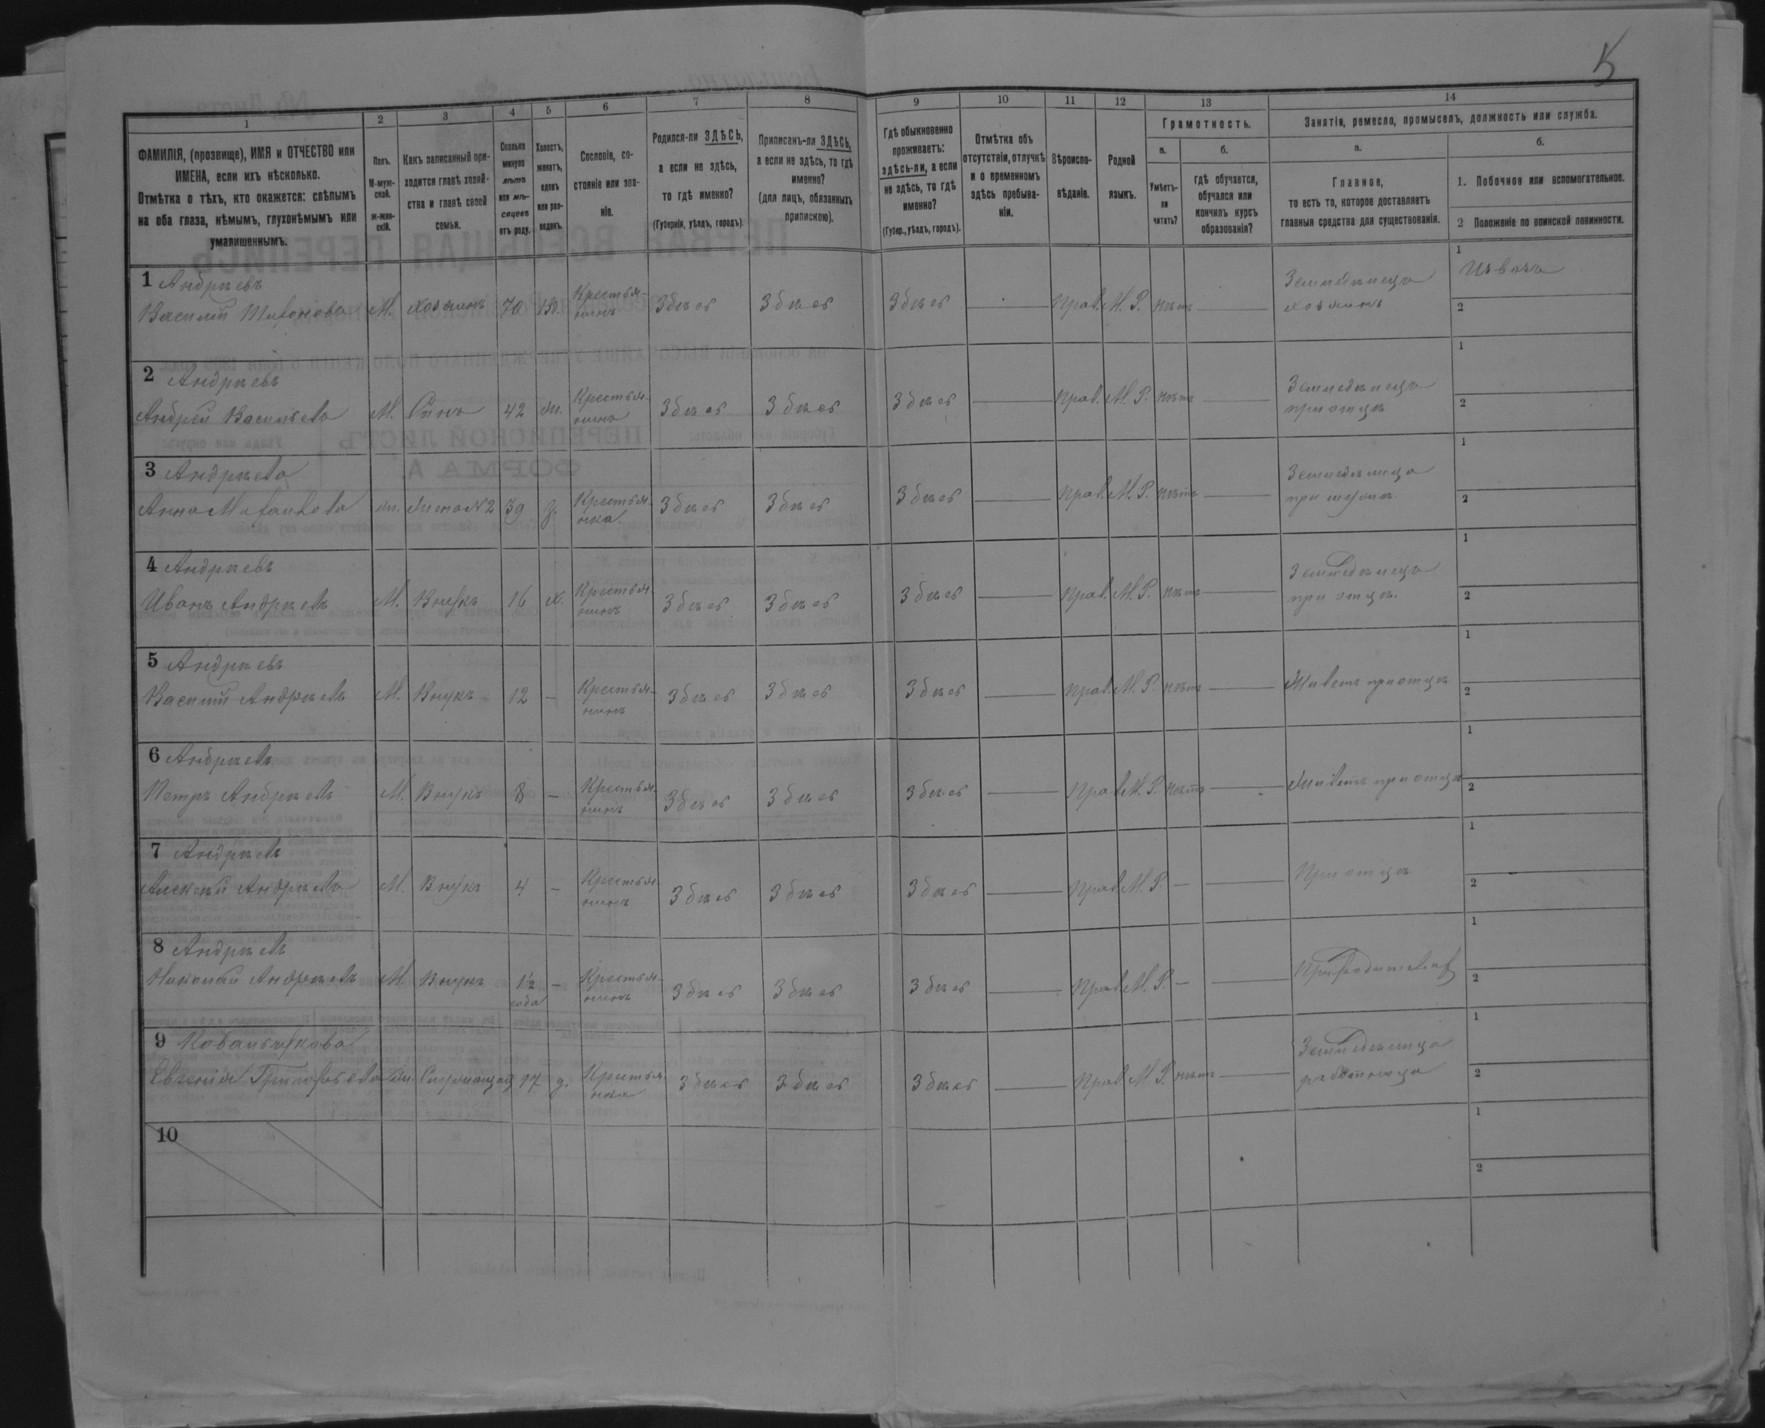 5
1 2 3 4 5 6 7 8 9 10 11 12 13 14
ФАМИЛІЯ, (прозвище), ИМЯ и ОТЧЕСТВО или
ИМЕНА, если ихъ нѣсколько.
Отмѣтка о тѣхъ, кто окажется: слѣпымъ
на оба глаза, нѣмымъ, глухонѣмымъ или
умалишеннымъ.
Полъ.
М-муж-
ской.
ж-жен-
скій.
Какъ записанный при-
ходится главѣ хозяй-
ства и главѣ своей
семьи.
Сколько
минуло
лѣтъ
или мѣ-
сяцевъ
отъ роду.
Холостъ,
женатъ,
вдовъ
или раз-
веденъ.
Сословіе, со-
стояніе или зва-
ніе.
Родился-ли ЗДѢСЬ,
а если не здѣсь,
то гдѣ именно?
(Губернія, уѣздъ, городъ).
Приписанъ-ли ЗДѢСЬ,
а если не здѣсь, то гдѣ
именно?
(для лицъ, обязанныхъ
припискою).
Гдѣ обыкновенно
проживаетъ:
здѣсь-ли, а если
не здѣсь, то гдѣ
именно?
(Губер., уѣздъ, городъ).
Отмѣтка объ
отсутствіи, отлучкѣ
и о временномъ
здѣсь пребыва-
ніи.
Вѣроиспо-
вѣданіе.
Родной
языкъ.
Грамотность.
а.
Умѣетъ-
ли
читать?
б.
гдѣ обучается,
обучался или
кончилъ курсъ
образованія?
Занятія, ремесло, промыселъ, должность или служба.
а.
Главное,
то есть то, которое доставляетъ
главныя средства для существованія.
б.
1. Побочное или вспомогательное.
2 Положеніе по воинской повинности.
1 Андреевъ
Василій Тихоновъ М. Хозяинъ 70 Вд. Крестья-
нинъ Здѣсь Здѣсь Здѣсь — Прав. М. Р. нѣтъ — Земледѣлецъ
хозяинъ 1 Извозъ
2
2 Андреевъ
Андрей Васильевъ М. Сынъ 42 Ж. Крестья-
нинъ Здѣсь Здѣсь Здѣсь — Прав. М. Р. нѣтъ — Земледѣлецъ
при отцѣ 1
2
3 Андреева
Анна Михайлова Ж. Жена №2 39 З. Крестья-
нка Здѣсь Здѣсь Здѣсь — Прав. М. Р. нѣтъ — Земледѣлица
при мужѣ 1
2
4 Андреевъ
Иванъ Андреевъ М. Внукъ 16 Х. Крестья-
нинъ Здѣсь Здѣсь Здѣсь — Прав. М. Р. нѣтъ — Земледѣлецъ
при отцѣ 1
2
5 Андреевъ
Василій Андреевъ М. Внукъ 12 — Крестья-
нинъ Здѣсь Здѣсь Здѣсь — Прав. М. Р. нѣтъ — Живетъ при отцѣ 1
2
6 Андреевъ
Петръ Андреевъ М. Внукъ 8 — Крестья-
нинъ Здѣсь Здѣсь Здѣсь — Прав. М. Р. нѣтъ — Живетъ при отцѣ 1
2
7 Андреевъ
Алексѣй Андреевъ М. Внукъ 4 — Крестья-
нинъ Здѣсь Здѣсь Здѣсь — Прав. М. Р. — — При отцѣ 1
2
8 Андреевъ
Николай Андреевъ М Внукъ 1½
года — Крестья-
нинъ Здѣсь Здѣсь Здѣсь — Прав. М. Р. — — При родителяхъ 1
2
9
Евгенія Григорьева Ж. 17 д. Крестья-
нка Здѣсь Здѣсь Здѣсь — Прав. М. Р. нѣтъ — Земледѣлица
работница 1
2
10 1
2